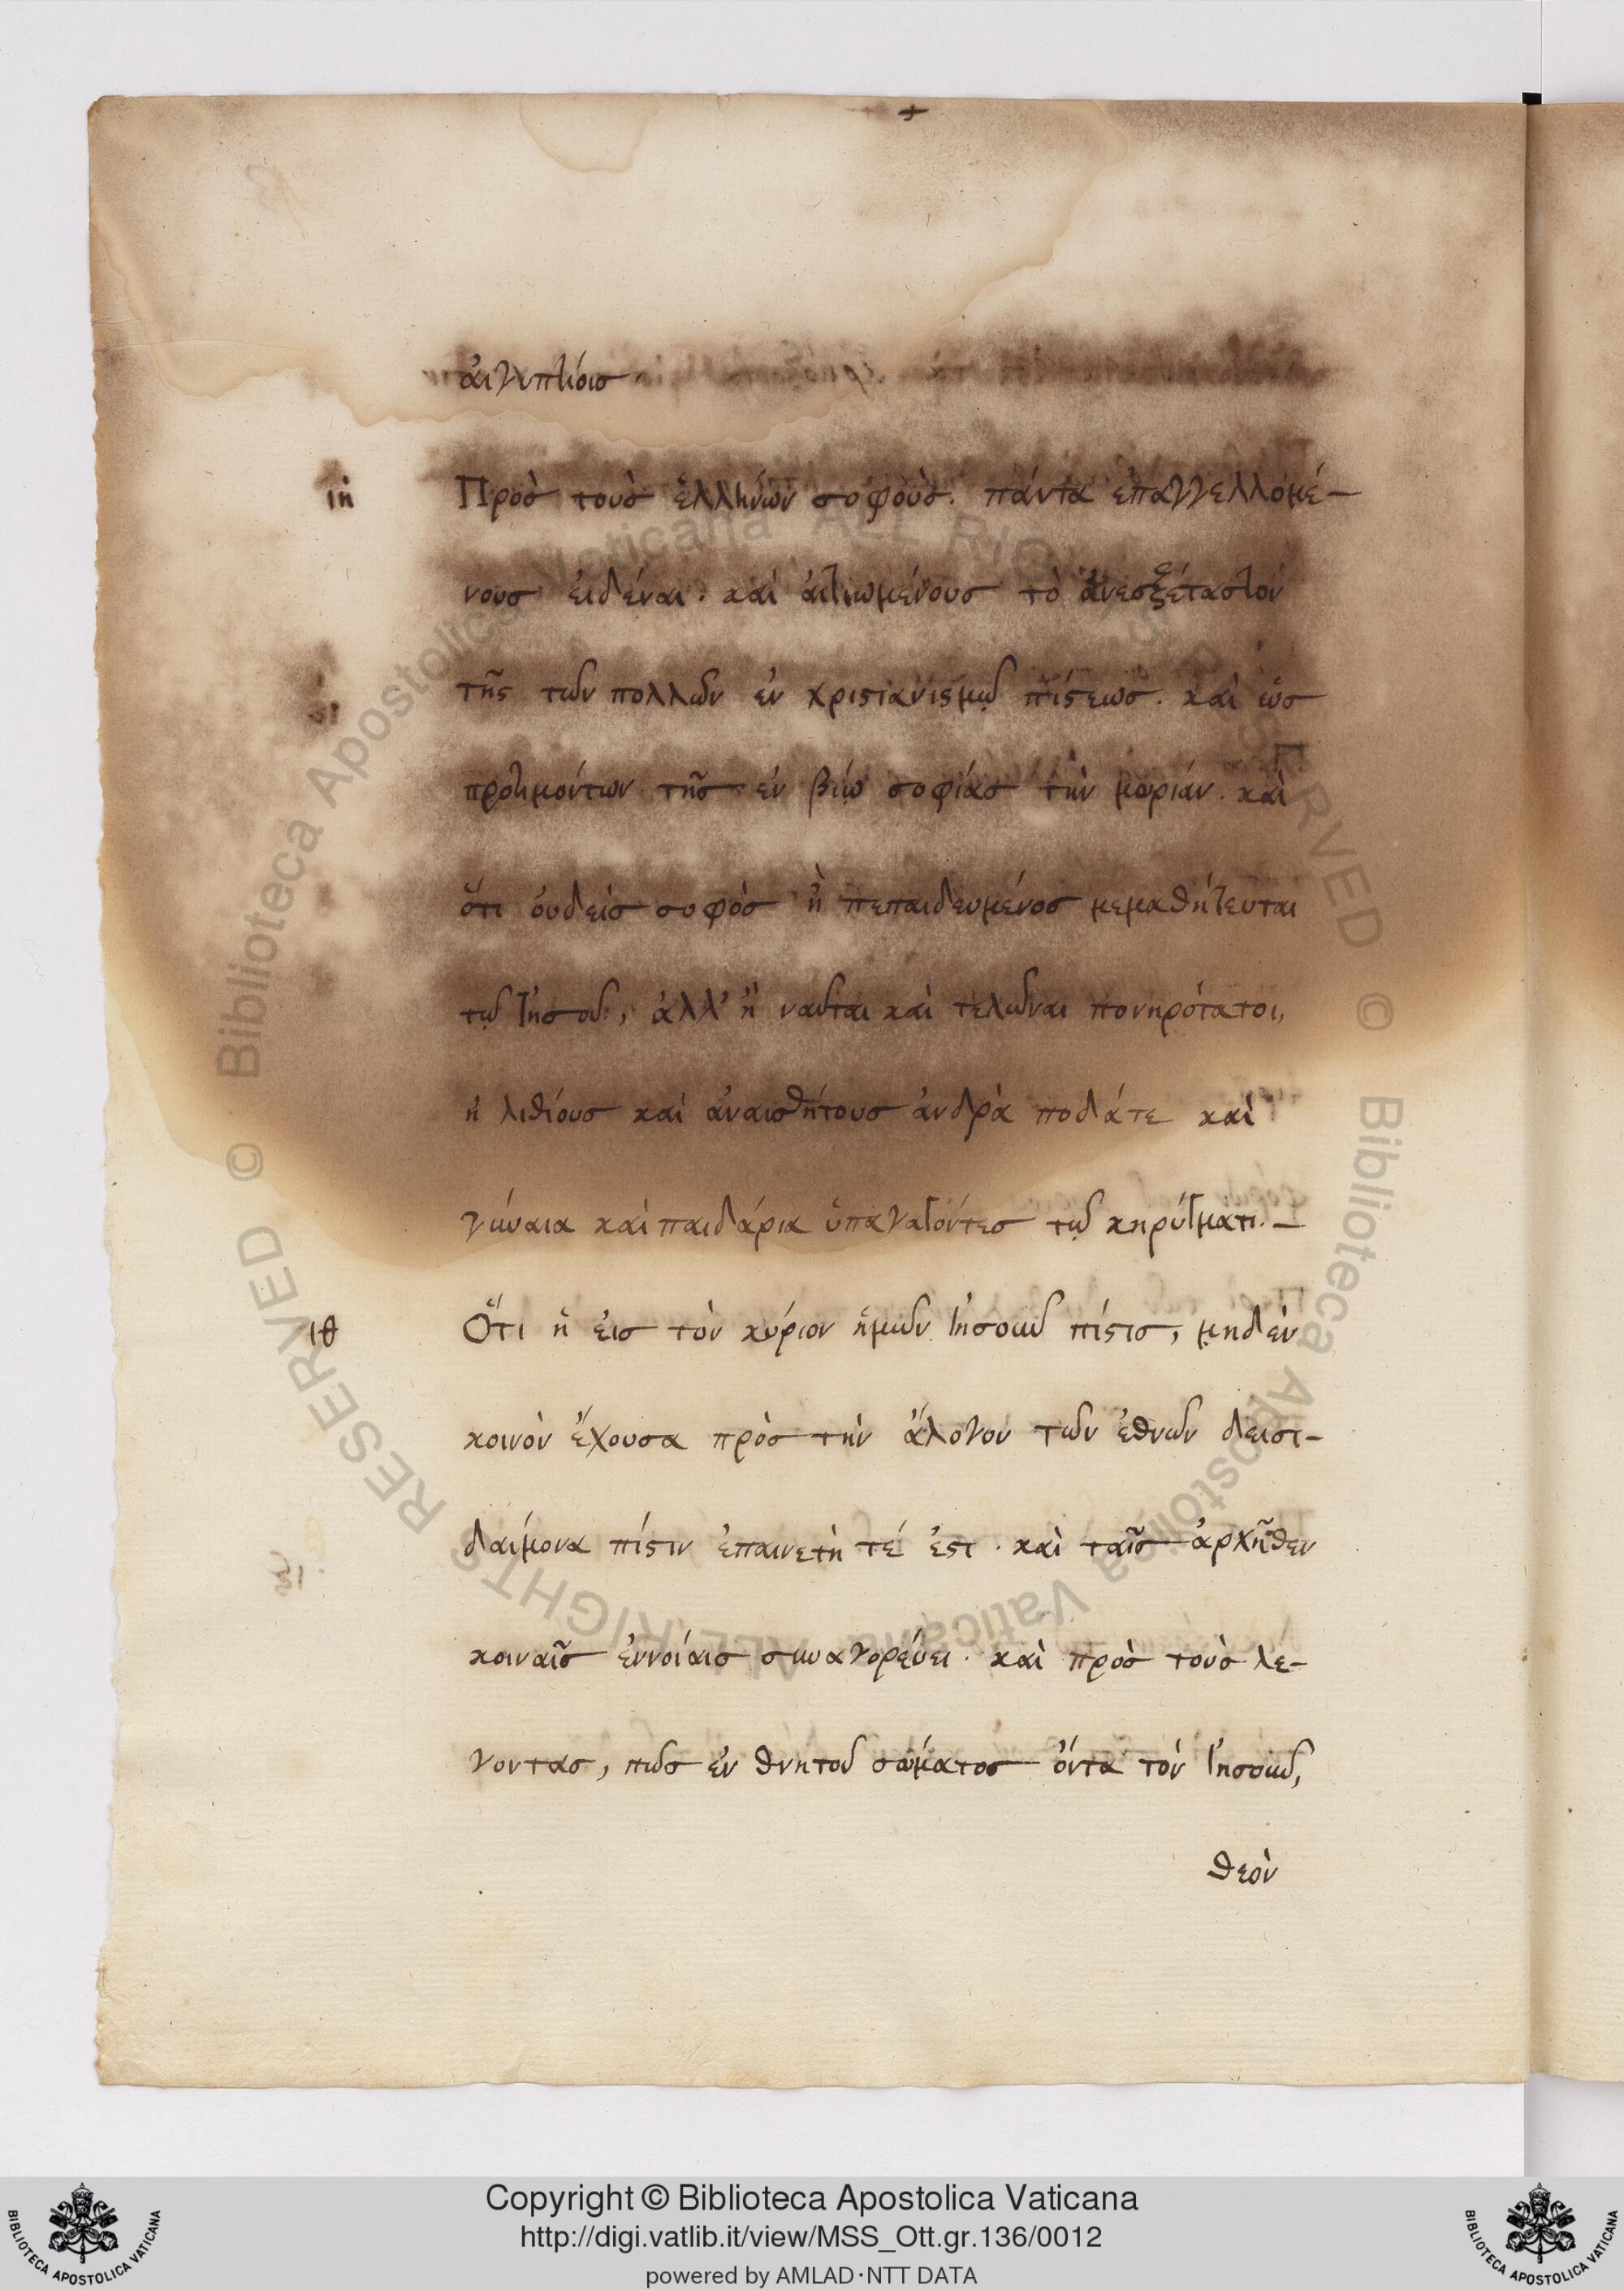 ἀιγυπτίοις
ιη Πρὸς τοὺς ἑλλήνων σοφοὺς. πάντα ἐπαγγελλομέ-
νους ἐιδέναι. καὶ ἀιτιωμένους τὸ ἀνεσξέταστον
τῆς τῶν πολλῶν ἐν χριστιανισμῷ πίστεως. καὶ ὡς
προτιμόντων τῆς ἐν βίῳ σοφίας τὴν μωρίαν. καὶ
ὅτι ὀυδεὶς σοφὸς ἢ πεπαιδευμένος μεμαθήτευται
τῷ Ἰησοῦ, ἀλλ' ἢ ναῦται καὶ τελῶναι πονηρότατοι,
ἠ λιθίους καὶ ἀναισθήτους ἀνδρὰ ποδάτε καὶ
γύναια καὶ παιδάρια ὑπαγαγόντες τῷ κηρύγματι.—
ιθ Ὅτι ἡ ἐις τὸν κύριον ἡμῶν Ἰησοῦν πίστις, μηδὲν
κοινὸν ἔχουσα πρὸς τὴν ἄλογον τῶν ἐθνῶν δεισι-
δαίμονα πίστιν ἐπαινετὴ τέ ἐστι. καὶ ταῖς ἀρχῆθεν
κοιναῖς ἐννοίαις συναγορέυει. καὶ πρὸς τοὺς λέ-
γοντας, πῶς ἐν θνητοῦ σώματος ὄντα τὸν Ἰησοῦν,
θεὸν
Copyright © Biblioteca Apostolica Vaticana
http://digi.vatlib.it/view/MSS_Ott.gr.136/0012
powered by AMLAD·NTT DATA
BIBLIOTECA APOSTOLICA VATICANA
BIBLIOTECA APOSTOLICA VATICANA
© Biblioteca Apostolica Vaticana ALL RIGHTS RESERVED © Biblioteca Apostolica Vaticana ALL RIGHTS RESERVED